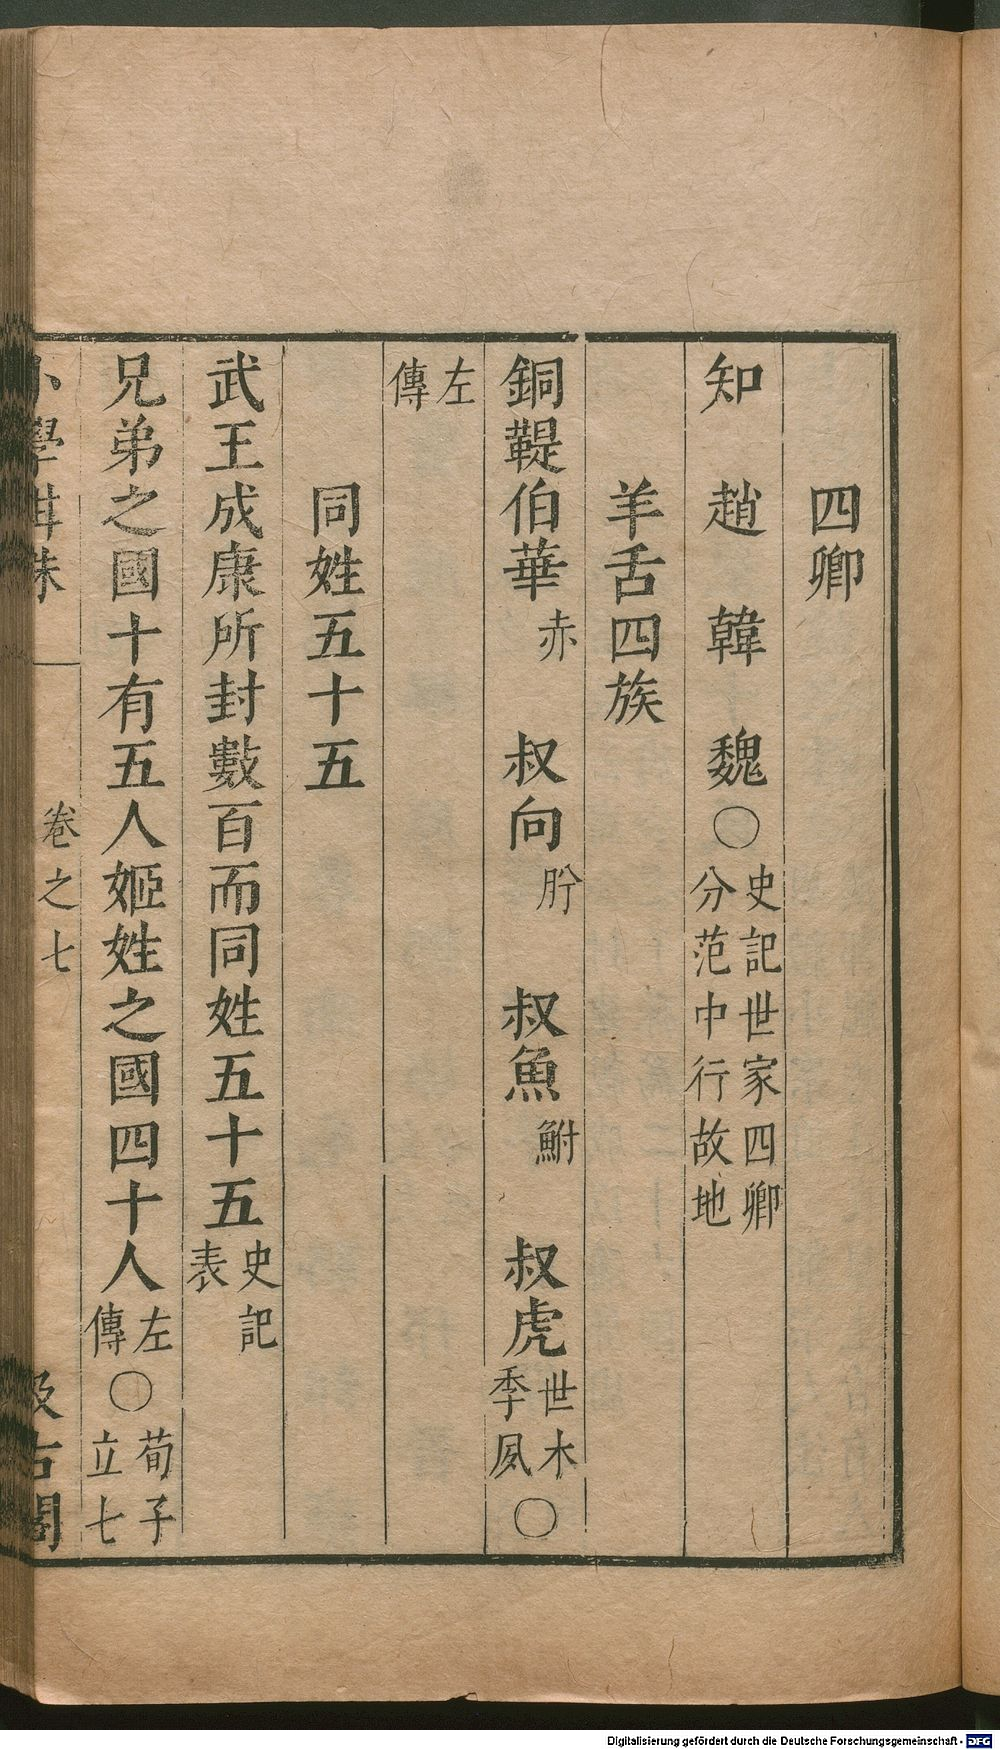 四卿
知 趙 韓 魏○史記世家四卿分范中行故地
羊舌四族
銅鞮伯華赤 叔向肸 叔魚鮒 叔虎世木季夙○
左傳
同姓五十五
武王成康所封數百而同姓五十五史記表
兄弟之國十有五人姬姓之國四十人左傳○荀子立七
小學紺珠 卷之七 汲古閣
Digitalisierung gefördert durch die Deutsche Forschungsgemeinschaft - DFG